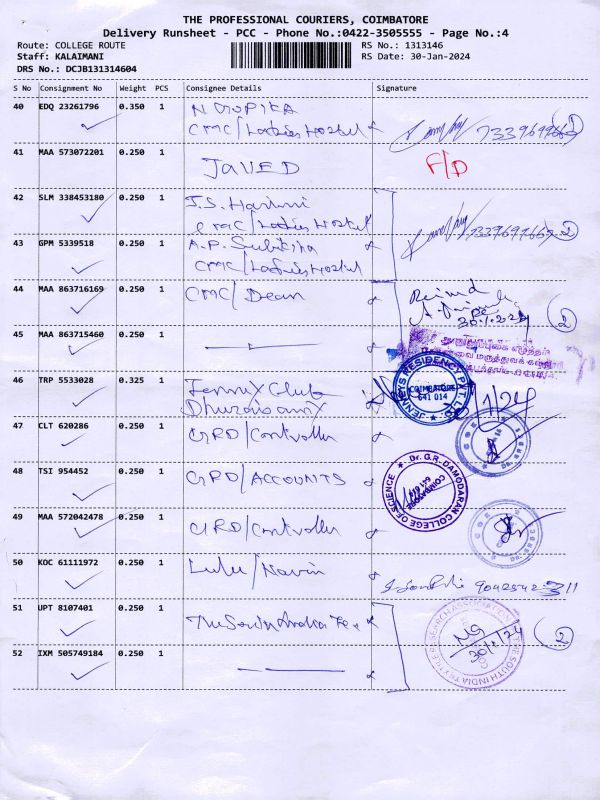 THE PROFESSIONAL COURIERS, COIMBATORE
Delivery Runsheet - PCC - Phone No.:0422-3505555 - Page No.:4
Route: COLLEGE ROUTE
RS No.: 1313146
Staff: KALAIMANI
RS Date: 30-Jan-2024
DRS No.: DCJB131314604
S No Consignment No Weight PCS Consignee Details Signature
40 EDQ 23261796 0.350 1 N GOPIKA
CMC/Ladies Hostel
41 MAA 573072201 0.250 1 JAVED F/D
42 SLM 338453180 0.250 1 J.S. Harini
CMC/Ladies Hostel
43 GPM 5339518 0.250 1 A.P. Subiksha
CMC/Ladies Hostel
44 MAA 863716169 0.250 1 CMC/Dean
30.1.2024
2
45 MAA 863715460 0.250 1
46 TRP 5533028 0.325 1 Jennix Club
JENNEYS RESIDENCY PVT. LTD.
COIMBATORE
641 014
47 CLT 620286 0.250 1 GRD/Controller
48 TSI 954452 0.250 1 GRD/ACCOUNTS
Dr. G.R. DAMODARAN COLLEGE OF SCIENCE
COIMBATORE
641 014
49 MAA 572042478 0.250 1 GRD/Controller
50 KOC 61111972 0.250 1 Lulu/Navin
51 UPT 8107401 0.250 1
THE SOUTH INDIA TEXTILE RESEARCH ASSOCIATION
30/1/24
2
52 IXM 505749184 0.250 1